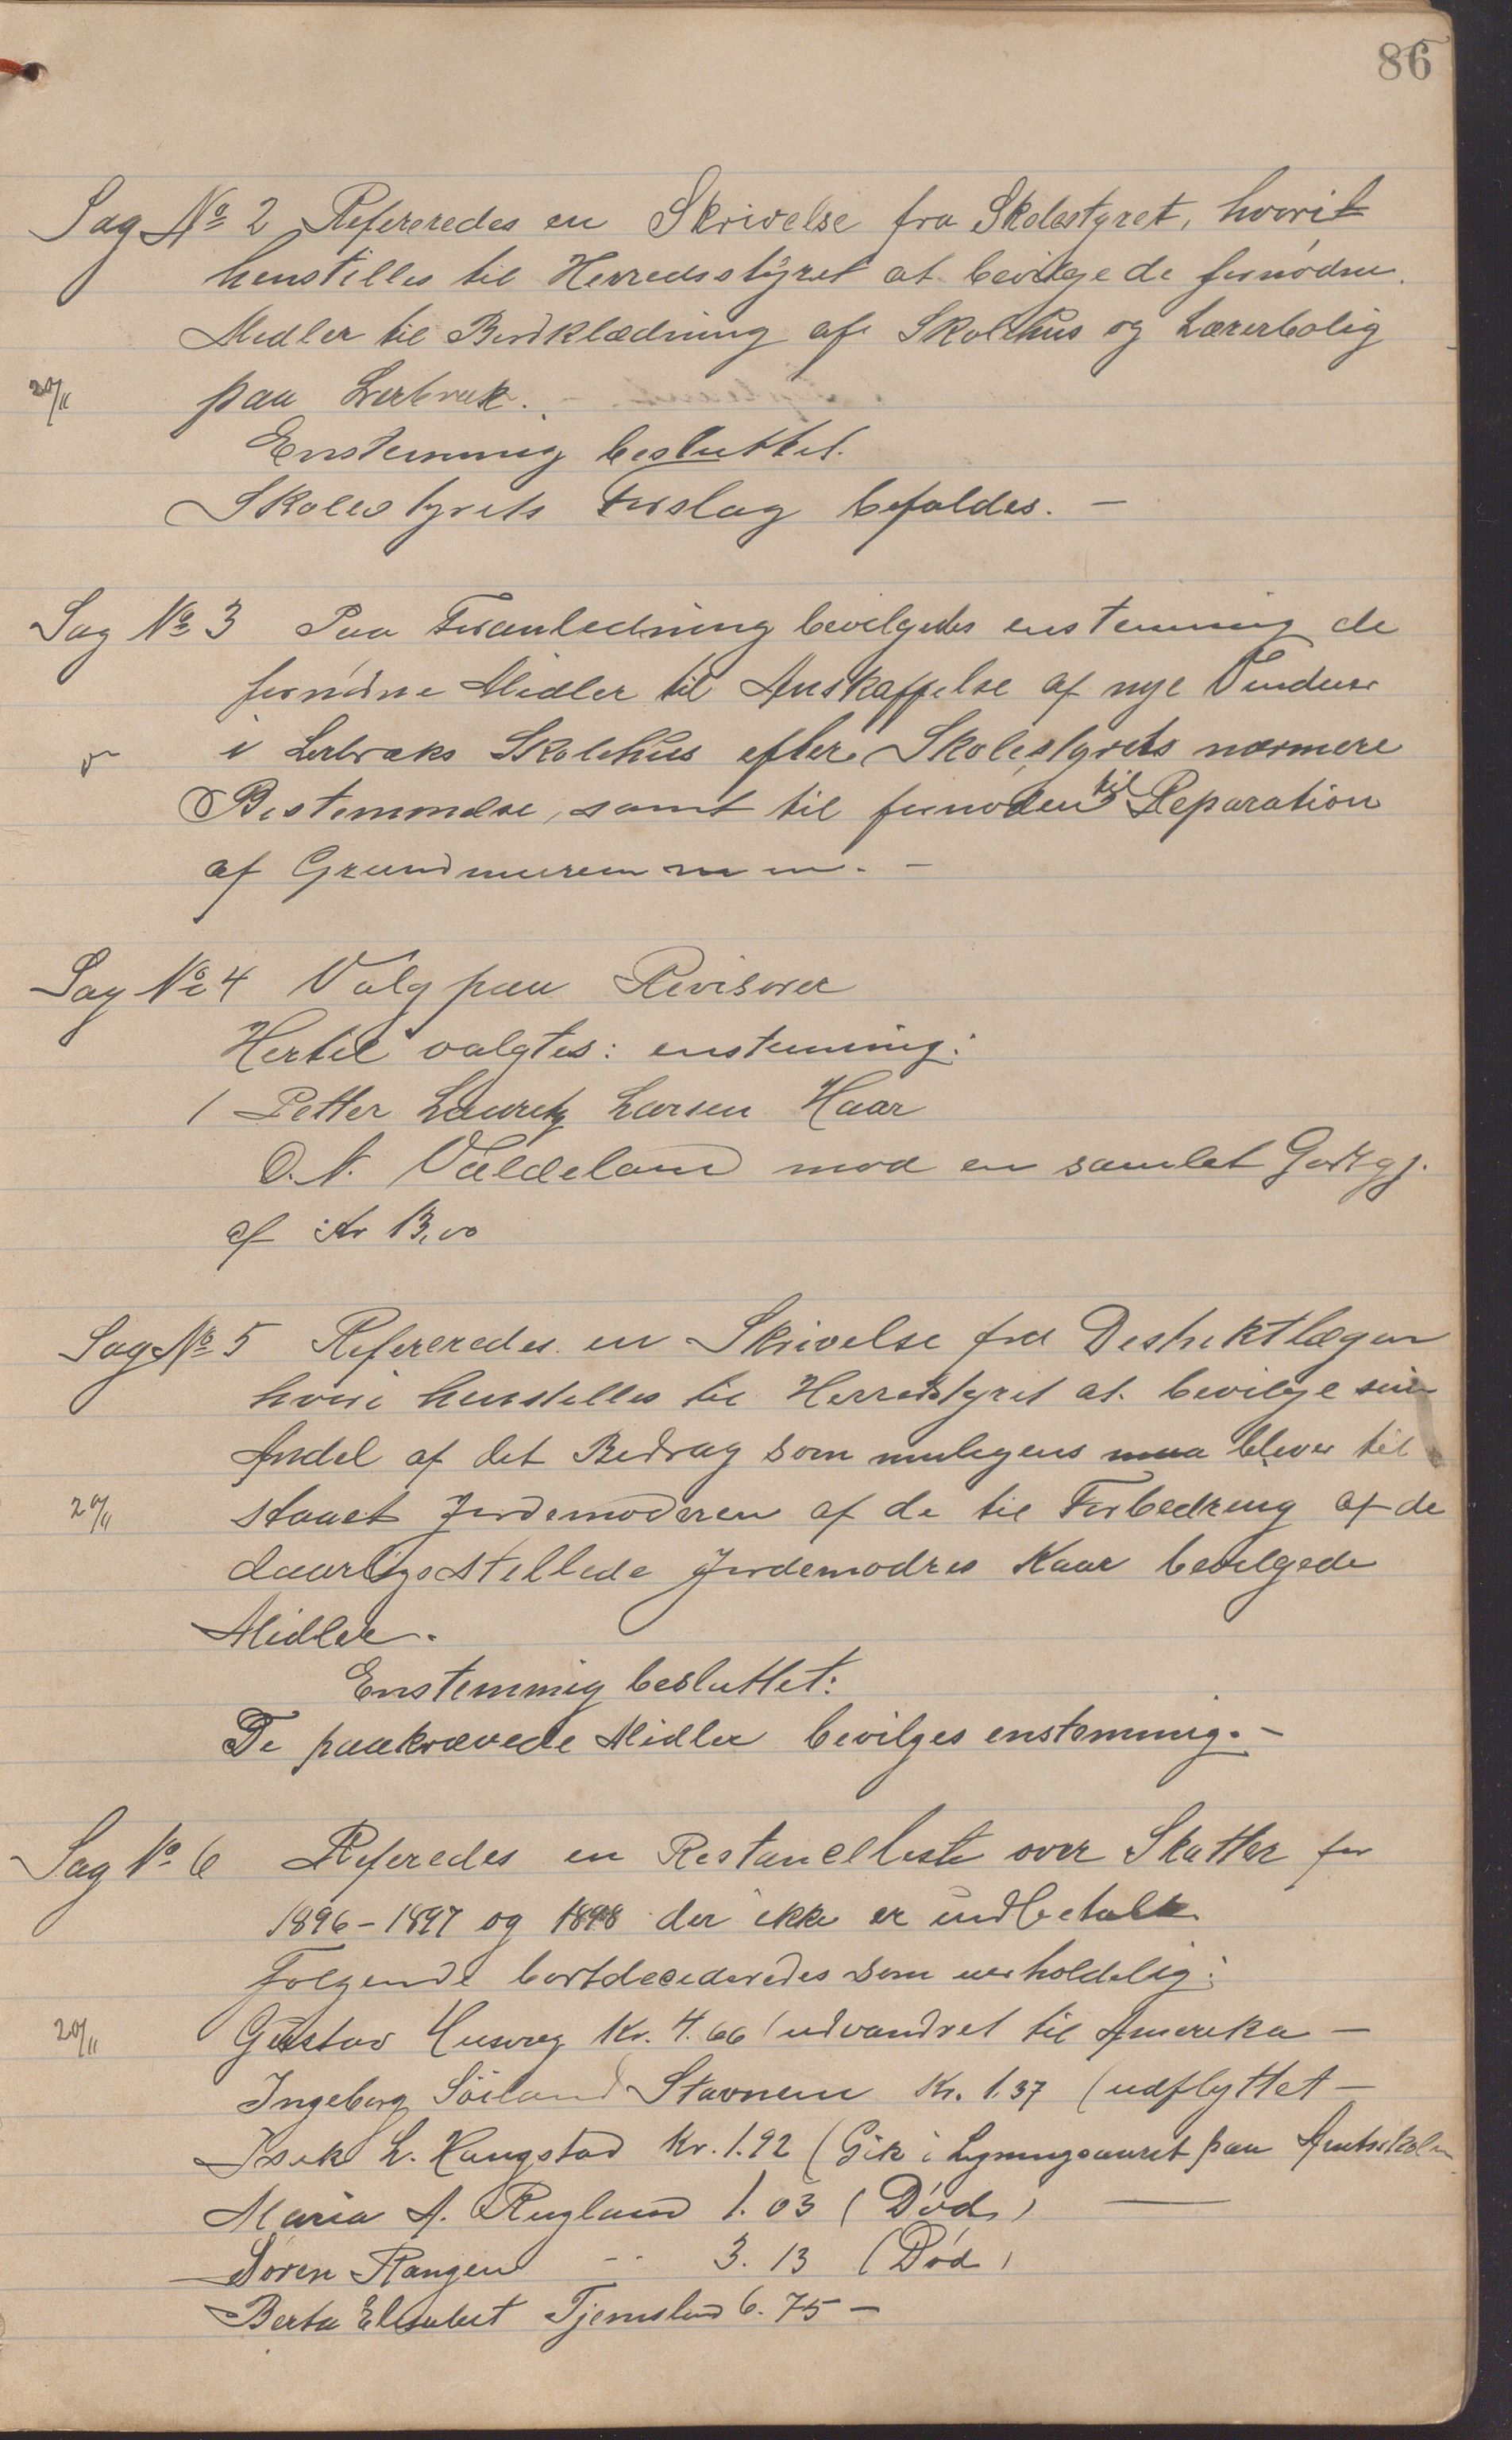 86
Sag No 2 Refereredes en Skrivelse fra Skolestyret, hvorit
henstilles til Herredsstyret at bevilge de fornødne
Midler til Bordklædning af Skolehus og Lærerbolig
20/11 paa Lerbræk.
Enstemmig besluttet.
Skolestyrets Forslag bifaldes. –
Sag No 3 Paa Foranledning bevilgedes enstemmig de
fornødne Midler til Anskaffelse af nye Vinduer
i Lerbræks Skolehus efter Skolestyrets nærmere
Bestemmelse, samt til fornøden til Reparation
af Grundmuren m m. –
Sag No 4 Valg paa Revisorer
Hertil valgtes: enstemmig:
1 Petter Lauritz Larsen Haar
O. N. Valdeland mod en samlet Godtgj.
af Kr 13,00
Sag No 5 Refereredes en Skrivelse fra Destriktlægen
hvori henstilles til Herredstyret at bevilge sin
Andel af det Bedrag som muligens maa bliver til
20/11 staaet Jordemoderen af de til Forbedring af de
daarligs stillede Jordemødres Kaar bevilgede
Midler.
Enstemmig besluttet:
De paakrævede Midler bevilges enstemmig. –
Sag No 6 Referedes en Restanceliste over Skatter for
1896 – 1897 og 1898 der ikke er indbetalt
Følgende bortdecideredes som uerholdelig:
20/11 Gustav Husveg Kr. 4.66 (udvandret til Amerika –
Ingeborg Søiland Stavnem Kr. 1.37 (udflyttet –
Isak L. Haugstad Kr. 1.92 (Gik i Ligningsaaret paa Amtsskolen
Maria A. Rugland 1.03 (Død)
Søren Rangen 3.13 (Død)
Berta Elisabet Tjemsland 6.75 –